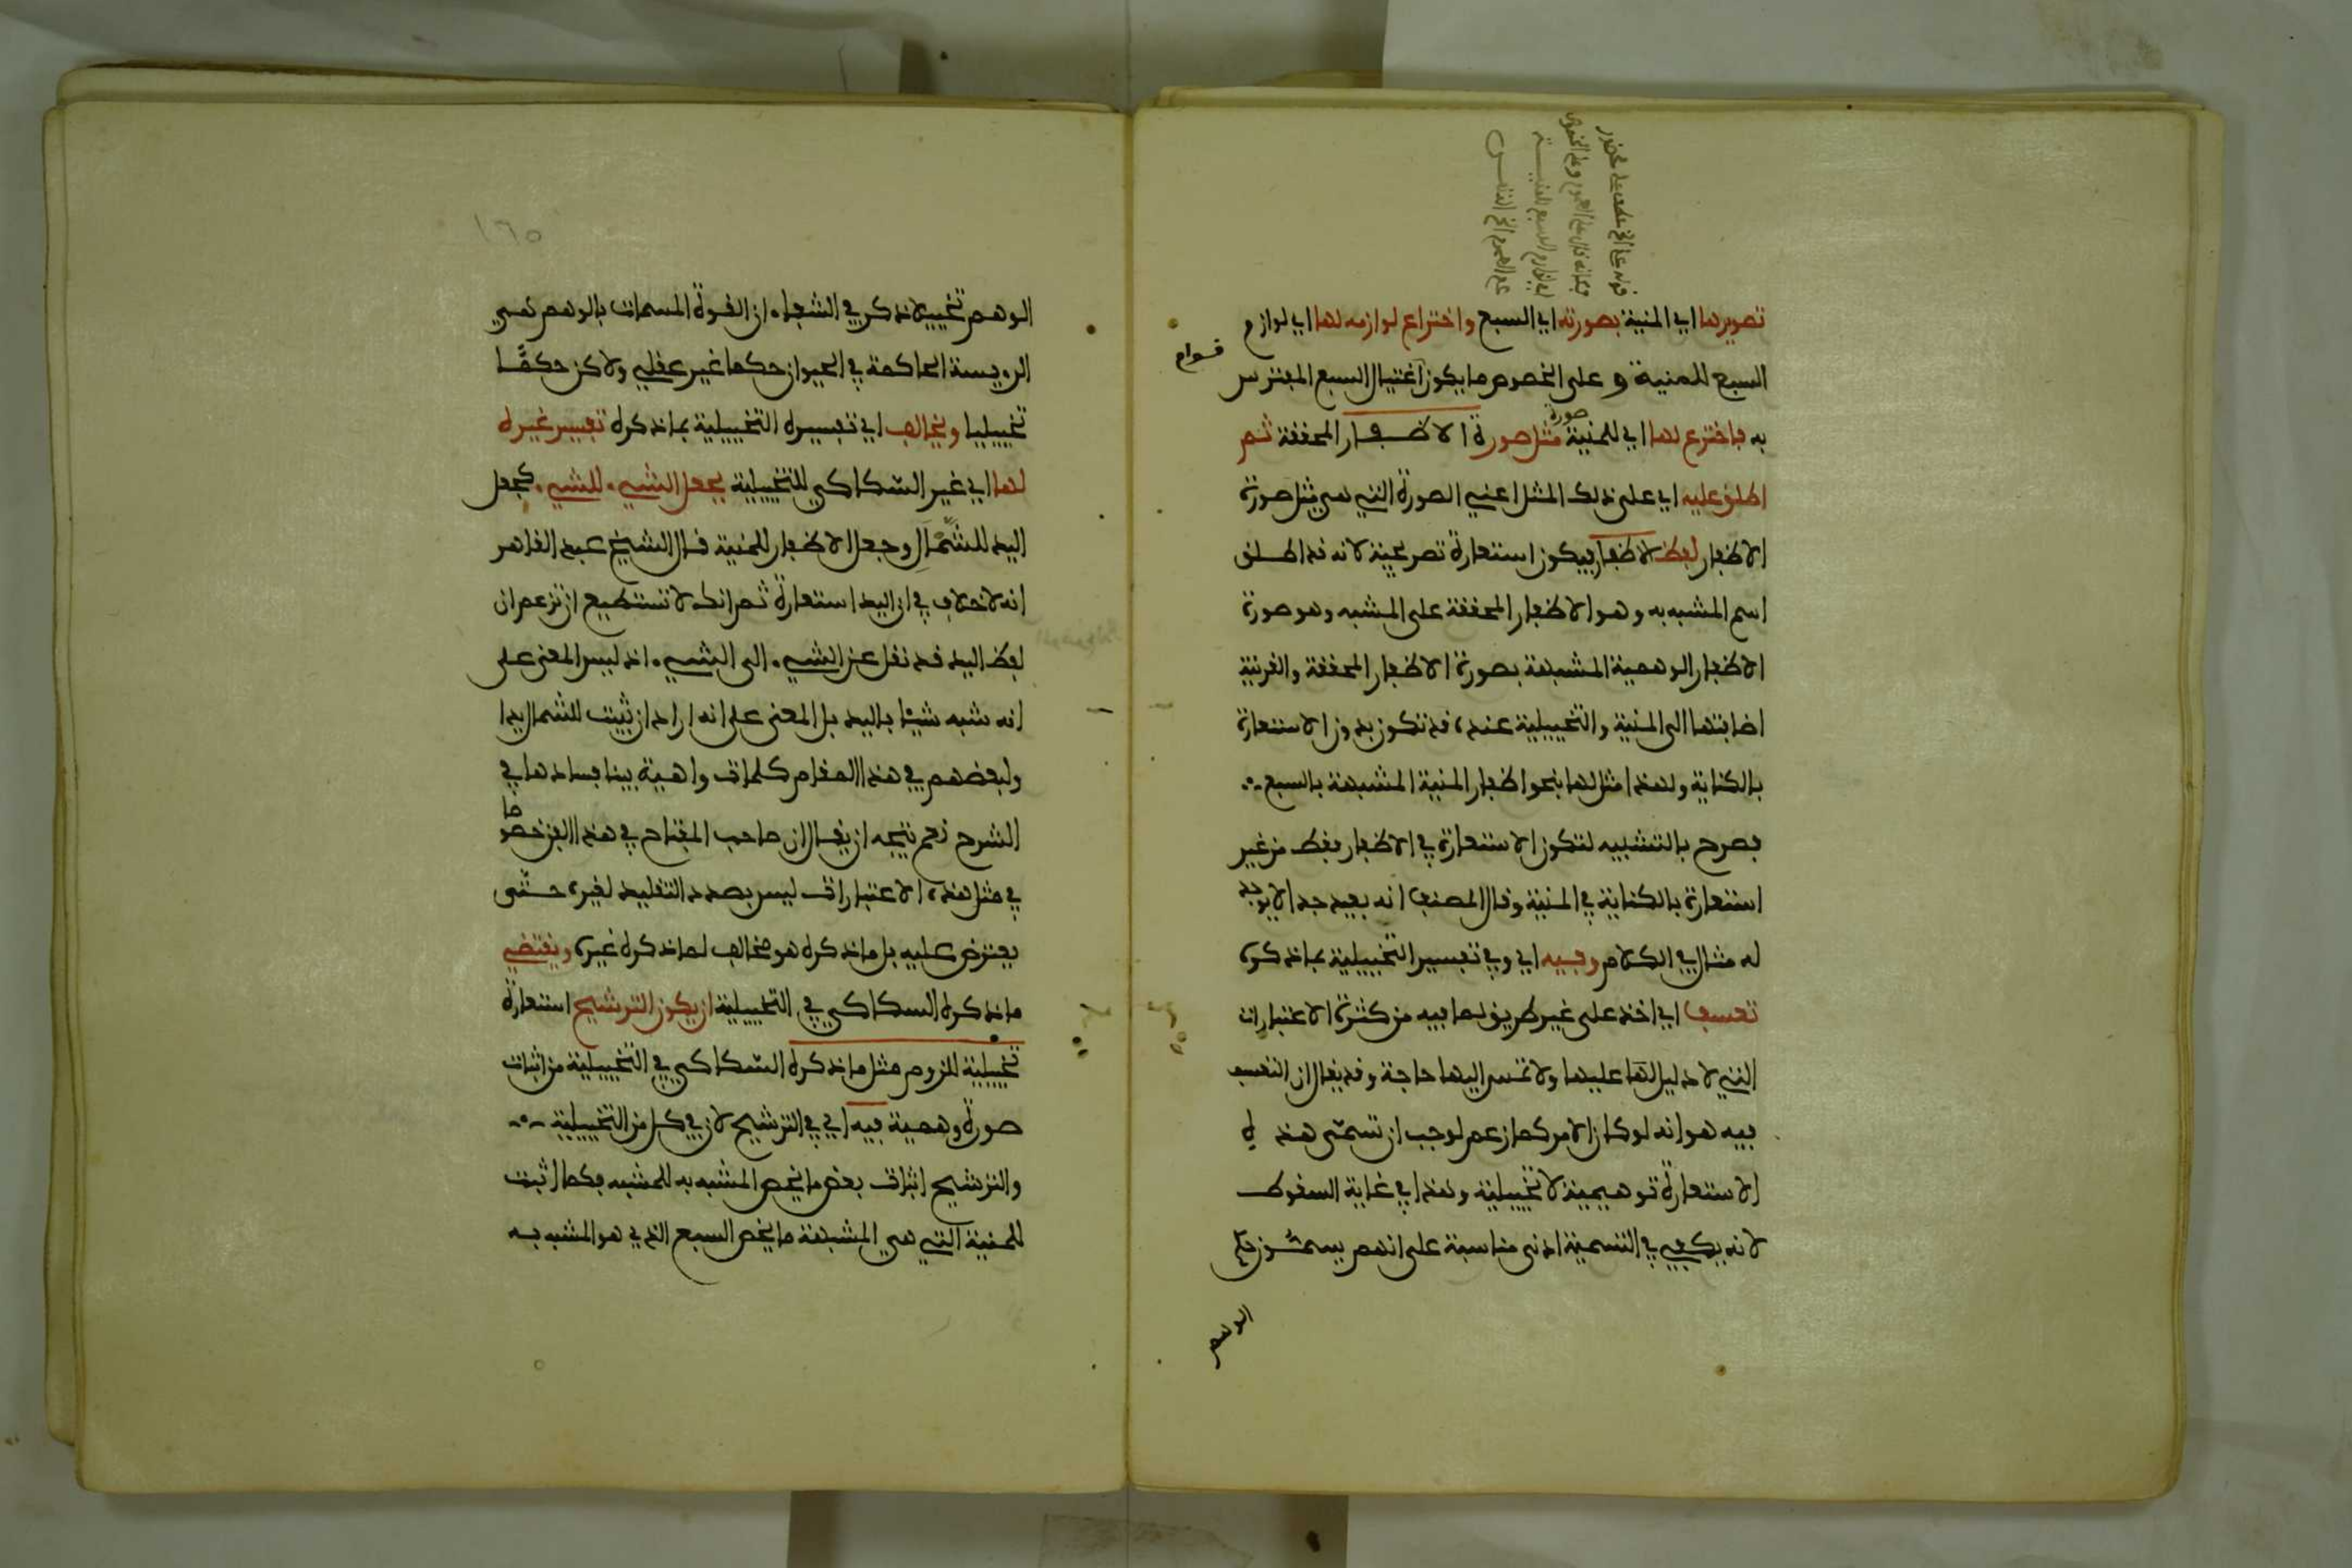 تصويرها اي المنية بصورته اي السبع واختراع لوازمه لها اي لوازم
السبع للمنية و على الخصوص ما يكون اغتيال السبع المفترس
قوام
به فاخترع لها اي للمنية صورة مثل صورة الاظفار المحققة ثم
اطلق عليه اي على ذلك المثل اعني الصورة التي هي مثل صورة
الاظفار لفظ الاظفار فيكون استعارة تصريحية لانه قد اطلق
اسم المشبه به وهو الاظفار المحققة على المشبه وهو صورة
الاظفار الوهمية المشبهة بصورة الاظفار المحققة والقرينة
اضافتها الى المنية والتخييلية عنده قد تكون بدون الاستعارة
بالكناية ولهذا مثل لها بنحو اظفار المنية المشبهة بالسبع
فصرح بالتشبيه لتكون الاستعارة في الاظفار فقط من غير
استعارة بالكناية في المنية وقال المصنف انه بعيد جدا لا يوجد
له مثال في الكلام وفيه اي وفي تفسير التخييلية بما ذكره
تعسف اي اخذ على غير طريق لما فيه من كثرة الاعتبارات
التي لا دليل لها عليها ولا تمس اليها حاجة وقد يقال ان التعسف
فيه هو انه لو كان الامر كما زعم لوجب ان تسمى هذه
الاستعارة توهيمية لا تخييلية وهذا في غاية السقوط
لانه يكفي في التسمية ادنى مناسبة على انهم يسمون حكم
الوهم
١٦٥
الوهم تخييلا ذكر في الشفاء ان القوة المسمات بالوهم هي
الرءيسة الحاكمة في الحيوان حكما غير عقلي ولاكن حكمًا
تخييليا ويخالف اي تفسيره التخييلية بما ذكره تفسير غيره
لها اي غير السكاكي للتخييلية بجعل الشيء للشيء كجعل
اليد للشمال وجعل الاظفار للمنية قال الشيخ عبد القاهر
انه لا خلاف في ان اليد استعارة ثم انك لا تستطيع ان تزعم ان
لفظ اليد قد نقل عن الشيء الى الشيء اذ ليس المعنى على
انه شبه شيئا باليد بل المعنى على انه اراد ان يثبت للشمال يدا
ولبعضهم في هذا المقام كلمات واهية بينا فسادها في
الشرح نعم يتجه ان يقال ان صاحب المفتاح في هذا الفن خصوصا
في مثل هذه الاعتبارات ليس بصدد التقليد لغيره حتى
يعترض عليه بل ما ذكره هو مخالف لما ذكره غيره ويقتضي
ما ذكره السكاكي في التخييلية ان يكون الترشيح استعارة
تخييلية للزوم مثل ما ذكره السكاكي في التخييلية من اثبات
صورة وهمية فيه اي في الترشيح لان في كل من التخييلية
والترشيح اثبات بعض ما يخص المشبه به للمشبه فكما اثبت
للمنية التي هي المشبهة ما يخص السبع الذي هو المشبه به